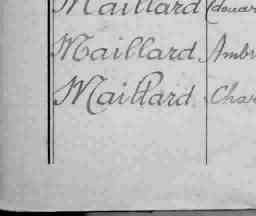 Maillard Edouar
Maillard Ambr
Maillard Char